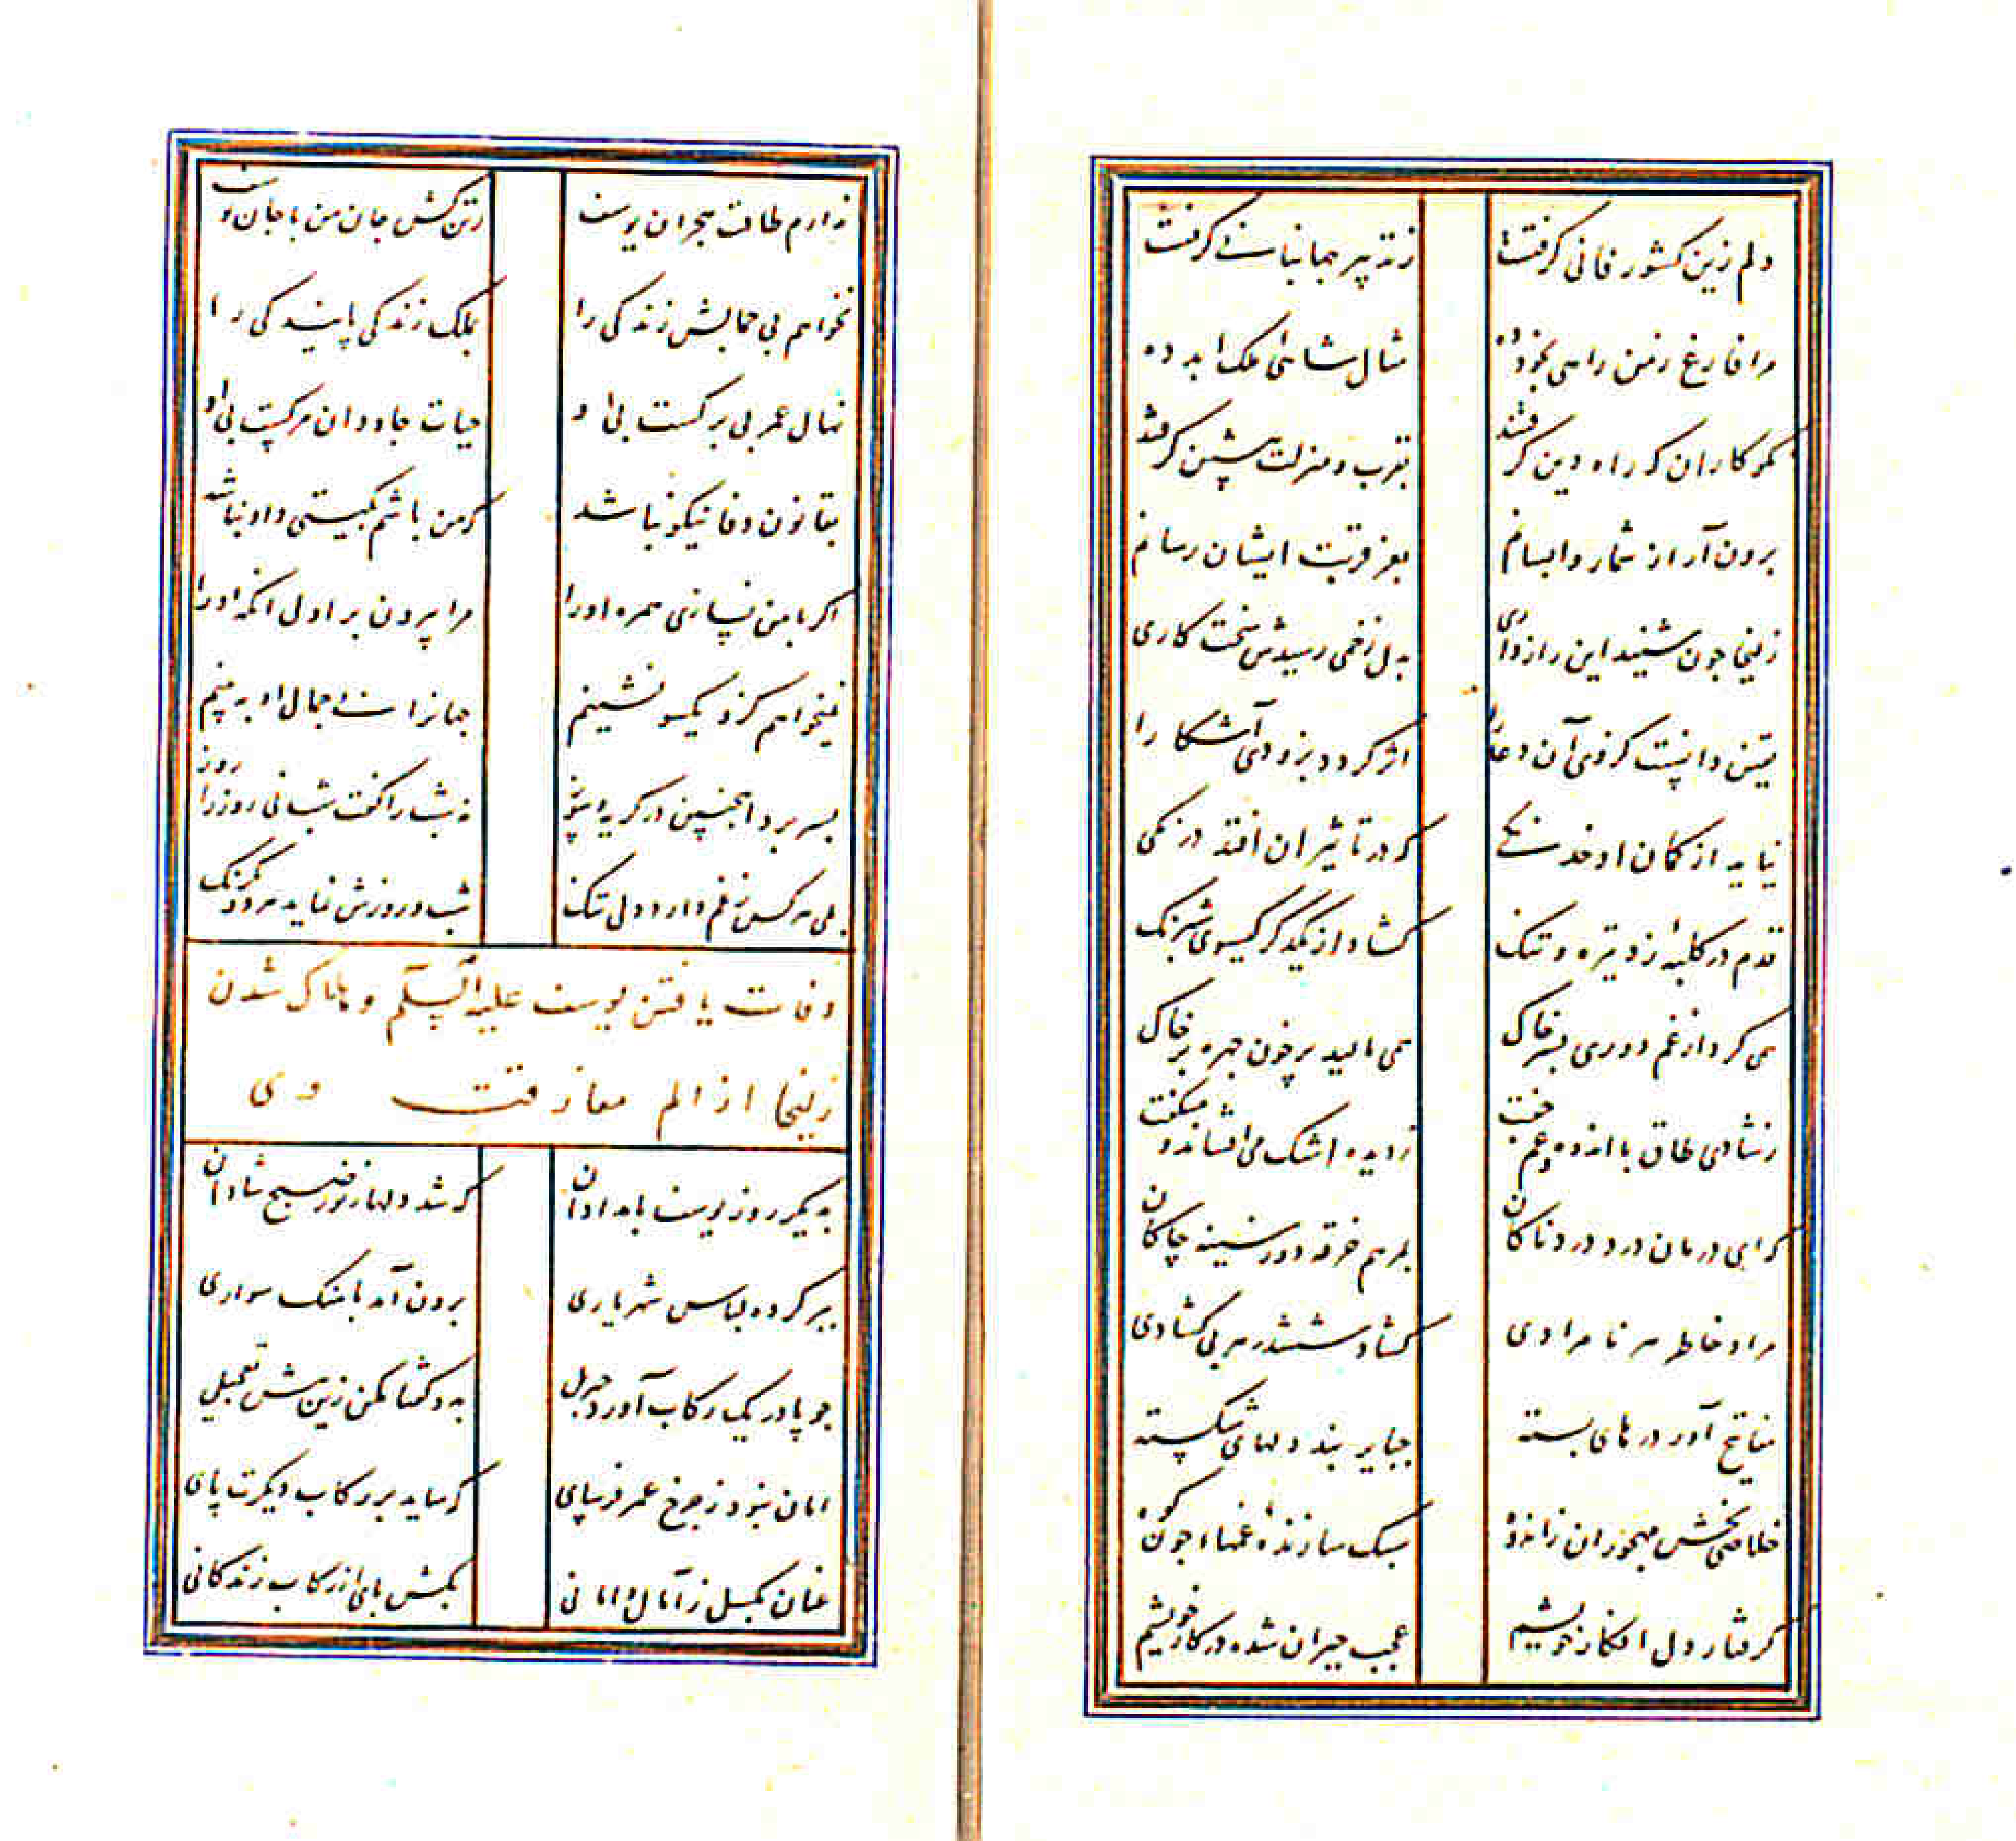 دلم زین کشور فانی گرفتست ز تدبیر جهانبانی گرفتست
مرا فارغ ز من راهی بخود ده مثال شاهی ملک ابد ده
نکوکاران که راه دین گرفتند بقرب و منزلت پیشین گرفتند
برون آر از شمار واپسانم بعز قربت ایشان رسانم
زلیخا چون شنید این رازداری بدل زخمی رسیدش سخت کاری
یقین دانست کز وی آن دعا را اثر گردد بزودی آشکارا
نیاید از کمان او خدنگی که در تاثیر آن افتد درنگی
قدم در کلبه‌ای زد تیره و تنگ گشاد از یکدگر گیسوی شبرنگ
همی کرد از غم دوری بسر خاک همی مالید پر خون چهره بر خاک
ز شادی طاق با اندوه و غم جفت ز دیده اشک می افشاند و میگفت
که ای درمان درد دردناکان بمرهم خرقه دوز سینه چاکان
مراد خاطر هر نامرادی گشاد ششدر هر بی گشادی
مفاتیح آور درهای بسته جبایر بند دلهای شکسته
خلاصی بخش مهجوران ز اندوه سبک سازنده غمهای چون کوه
گرفتار دل افکار خویشم عجب حیران شده در کار خویشم
ندارم طاقت هجران یوسف ز تن کش جان من با جان یوسف
نخواهم بی جمالش زندگی را بملک زندگی پایندگی را
نهال عمر بی برگست بی او حیات جاودان مرگست بی او
بقانون وفا نیکو نباشد که من باشم بگیتی و او نباشد
اگر با من نسازی همره او را مرا بیرون بر اول آنگه او را
نمیخواهم کزو یکسو نشینم جهانرا بی جمال او ببینم
بسر برد اینچنین در گریه و سوز نه شب را گفت شب نی روز را روز
بلی هر کس ز غم دارد دلی تنگ شب و روزش نماید هر دو یکرنگ
وفات یافتن یوسف علیه السلم و هلاک شدن
زلیخا از الم مفارقت وی
بدیگر روز یوسف بامدادان که شد دلها ز نور صبح شادان
ببر کرده لباس شهریاری برون آمد باهنگ سواری
چو پا در یک رکاب آورد جبریل بدو گفتا مکن زین بیش تعجیل
امان نبود ز چرخ عمر فرسای که ساید بر رکاب دیگرت پای
عنان بگسل ز آمال و امانی بکش پای از رکاب زندگانی